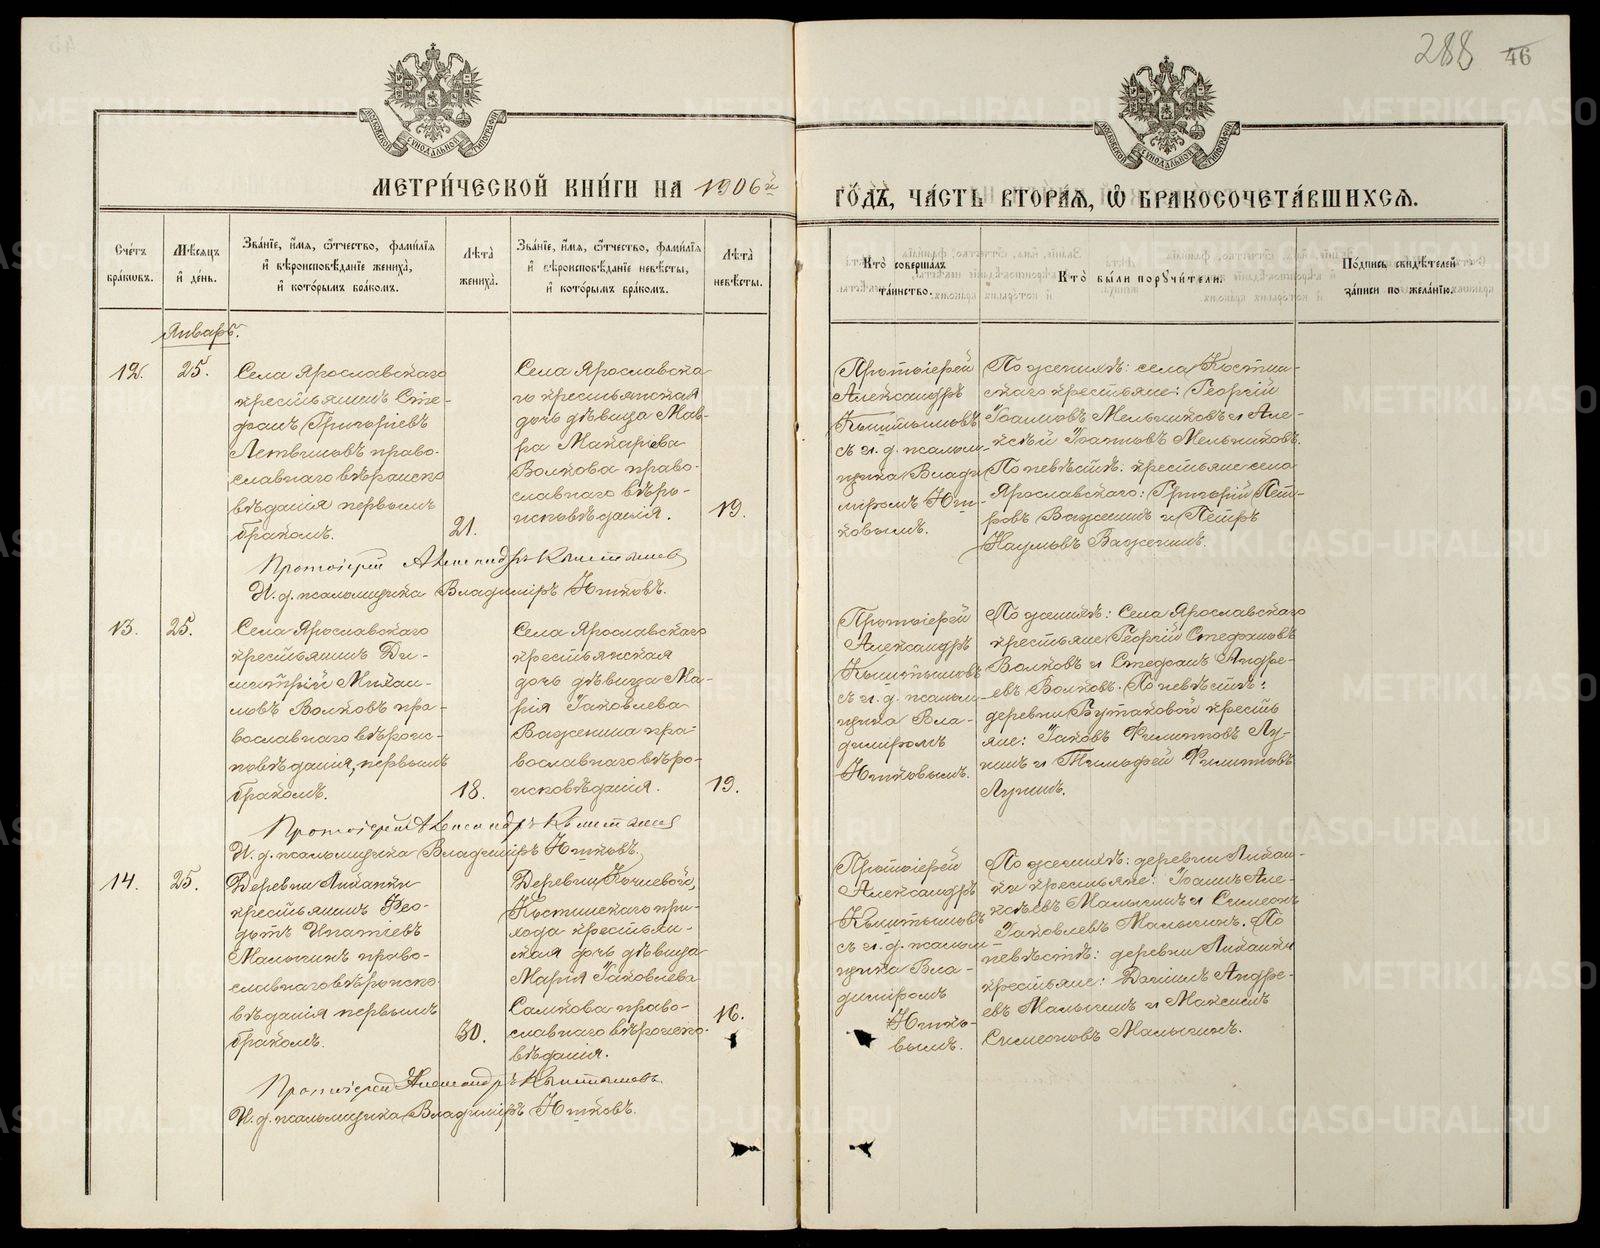 288 46
МЕТРИ́ЧЕСКОЙ КНИ́ГИ НА 1906й ГО́ДЪ, ЧА́СТЬ ВТОРА́Ѧ, Ѡ҆ БРАКОСОЧЕТА́ВШИХСѦ.
Сче́тъ
бра́ковъ.
Мѣ́сѧцъ
и҆ де́нь.
Зва́нїе, и҆́мѧ, ѻ҆́тчество, фами́лїѧ
и҆ вѣроисповѣ́данїе жениха̀,
и҆ кото́рымъ бра́комъ.
Лѣта̀
жениха̀.
Зва́нїе, и҆́мѧ, ѻ҆́тчество, фами́лїѧ
и҆ вѣроисповѣ́данїе невѣ́сты,
и҆ кото́рымъ бра́комъ.
Лѣта̀
невѣ́сты.
Кто̀ соверша́лъ
та́инство.
Кто̀ бы́ли поꙋчи́тели.
По́дпись свидѣ́телей
за́писи по жела́нїю.
Январь.
12.
25.
Села Ярославскаго
крестьянинъ Сте-
фанъ Григоріевъ
Летвиновъ право-
славнаго вѣроиспо
вѣданія первымъ
бракомъ.
21.
Села Ярославска-
го крестьянская
дочь дѣвица Мав-
ра Макарiева
Волкова право-
славнаго вѣро-
исповѣданія.
19.
Протоіерей
Александръ
Кыштымовъ
съ и. д. псалом-
щика Влади
міромъ Ют-
ковымъ.
По женихѣ: села Костин-
скаго крестьяне: Георгій
Іоанновъ Мельниковъ и Але-
ксѣй Іоанновъ Мельниковъ.
По невѣстѣ: крестьяне села
Ярославскаго: Григорій Пет-
ровъ Важенинъ и Петръ
Наумовъ Важенинъ.
Протоіерей Александръ Кыштымовъ
И. д. псаломщика Владиміръ Ютковъ.
13.
25.
Села Ярославскаго
крестьянинъ Ди-
митрій Михаи-
ловъ Волковъ пра-
вославнаго вѣроис-
повѣданія, первымъ
бракомъ.
18.
Села Ярославскаго
крестьянская
дочь дѣвица Ма-
рія Іаковлева
Важенина пра-
вославнаго вѣро-
исповѣданія.
19.
Протоіерей
Александръ
Кыштымовъ
съ и. д. псалом-
щика Вла-
диміромъ
Ютковымъ.
По женихѣ: Села Ярославскаго
крестьяне Георгій Стефановъ
Волковъ и Стефанъ Андре-
евъ Волковъ. По невѣстѣ:
деревни Бутаковой кресть
яне: Іаковъ Филипповъ Лу-
нинъ и Тимофей Филипповъ
Лунинъ.
Протоіерей Александръ Кыштымовъ
И. д. псаломщика Владиміръ Ютковъ.
14.
25.
Деревни
крестьянинъ Фео-
дотъ Игнатіевъ
Малыгинъ право-
славнаго вѣроиспо-
вѣданія первымъ
бракомъ.
30.
Деревни Кочневой,
Костинскаго при-
хода крестьян-
ская дочь дѣвица
Марія Іаковлева
Самкова право-
славнаго вѣроиспо-
вѣданія.
16.
Протоіерей
Александръ
Кыштымовъ
съ и. д. псалом-
щика Вла-
диміромъ
Ютко-
вымъ.
По женихѣ: деревни
крестьяне: Іоаннъ Але-
ксѣевъ Малыгинъ и Симеонъ
Іаковлевъ Малыгинъ. По
невѣстѣ: деревни
крестьяне: Даніилъ Андре-
евъ Малыгинъ и Максимъ
Симеоновъ Малыгинъ.
Протоіерей Александръ Кыштымовъ.
И. д. псаломщика Владиміръ Ютковъ.
METRIKI.GASO-URAL.RU